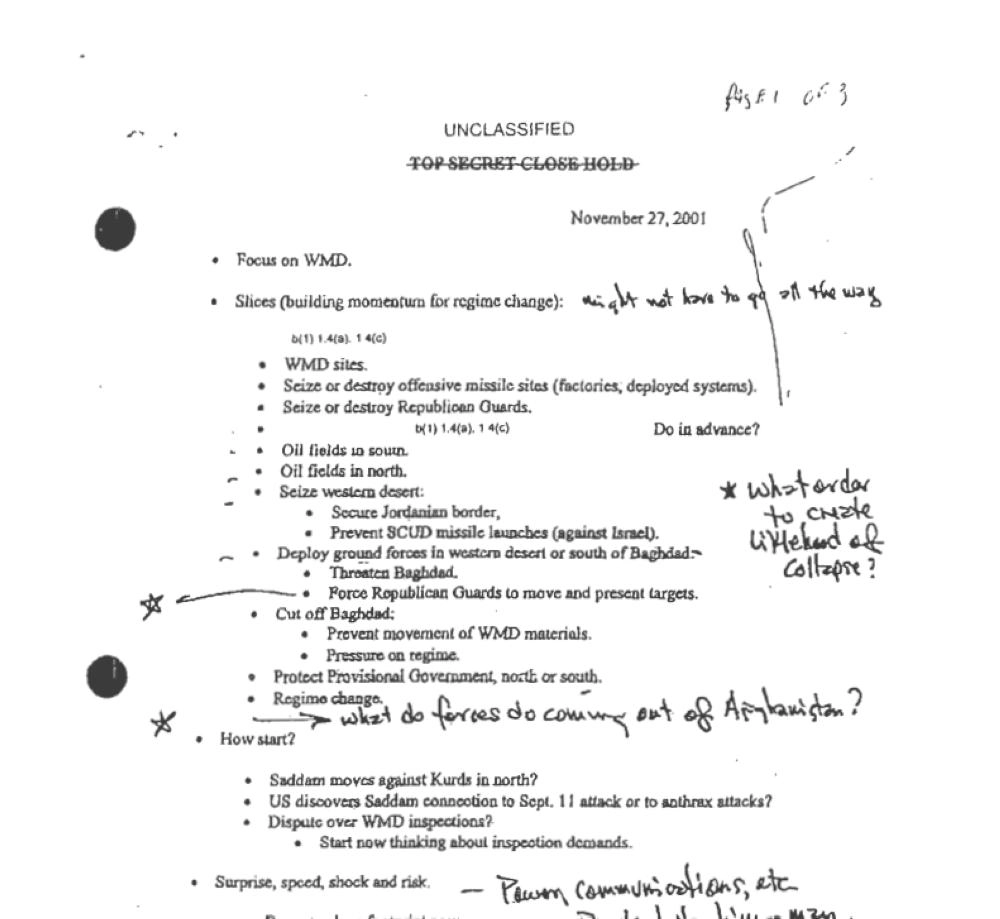 Page 1 of 3
UNCLASSIFIED
TOP SECRET CLOSE HOLD
November 27, 2001
• Focus on WMD.
• Slices (building momentum for regime change): might not have to go all the way
b(1) 1.4(a). 1 4(c)
• WMD sites.
• Seize or destroy offensive missile sites (factories, deployed systems).
• Seize or destroy Republican Guards.
• b(1) 1.4(a). 1 4(c) Do in advance?
• Oil fields in south.
• Oil fields in north.
• Seize western desert:
• Secure Jordanian border,
• Prevent SCUD missile launches (against Israel).
★ What order
to create
likelihood of
collapse?
• Deploy ground forces in western desert or south of Baghdad:
• Threaten Baghdad.
• Force Republican Guards to move and present targets.
• Cut off Baghdad:
• Prevent movement of WMD materials.
• Pressure on regime.
• Protect Provisional Government, north or south.
• Regime change.
→ What do forces do coming out of Afghanistan?
• How start?
• Saddam moves against Kurds in north?
• US discovers Saddam connection to Sept. 11 attack or to anthrax attacks?
• Dispute over WMD inspections?
• Start now thinking about inspection demands.
• Surprise, speed, shock and risk. — Power, communications, etc